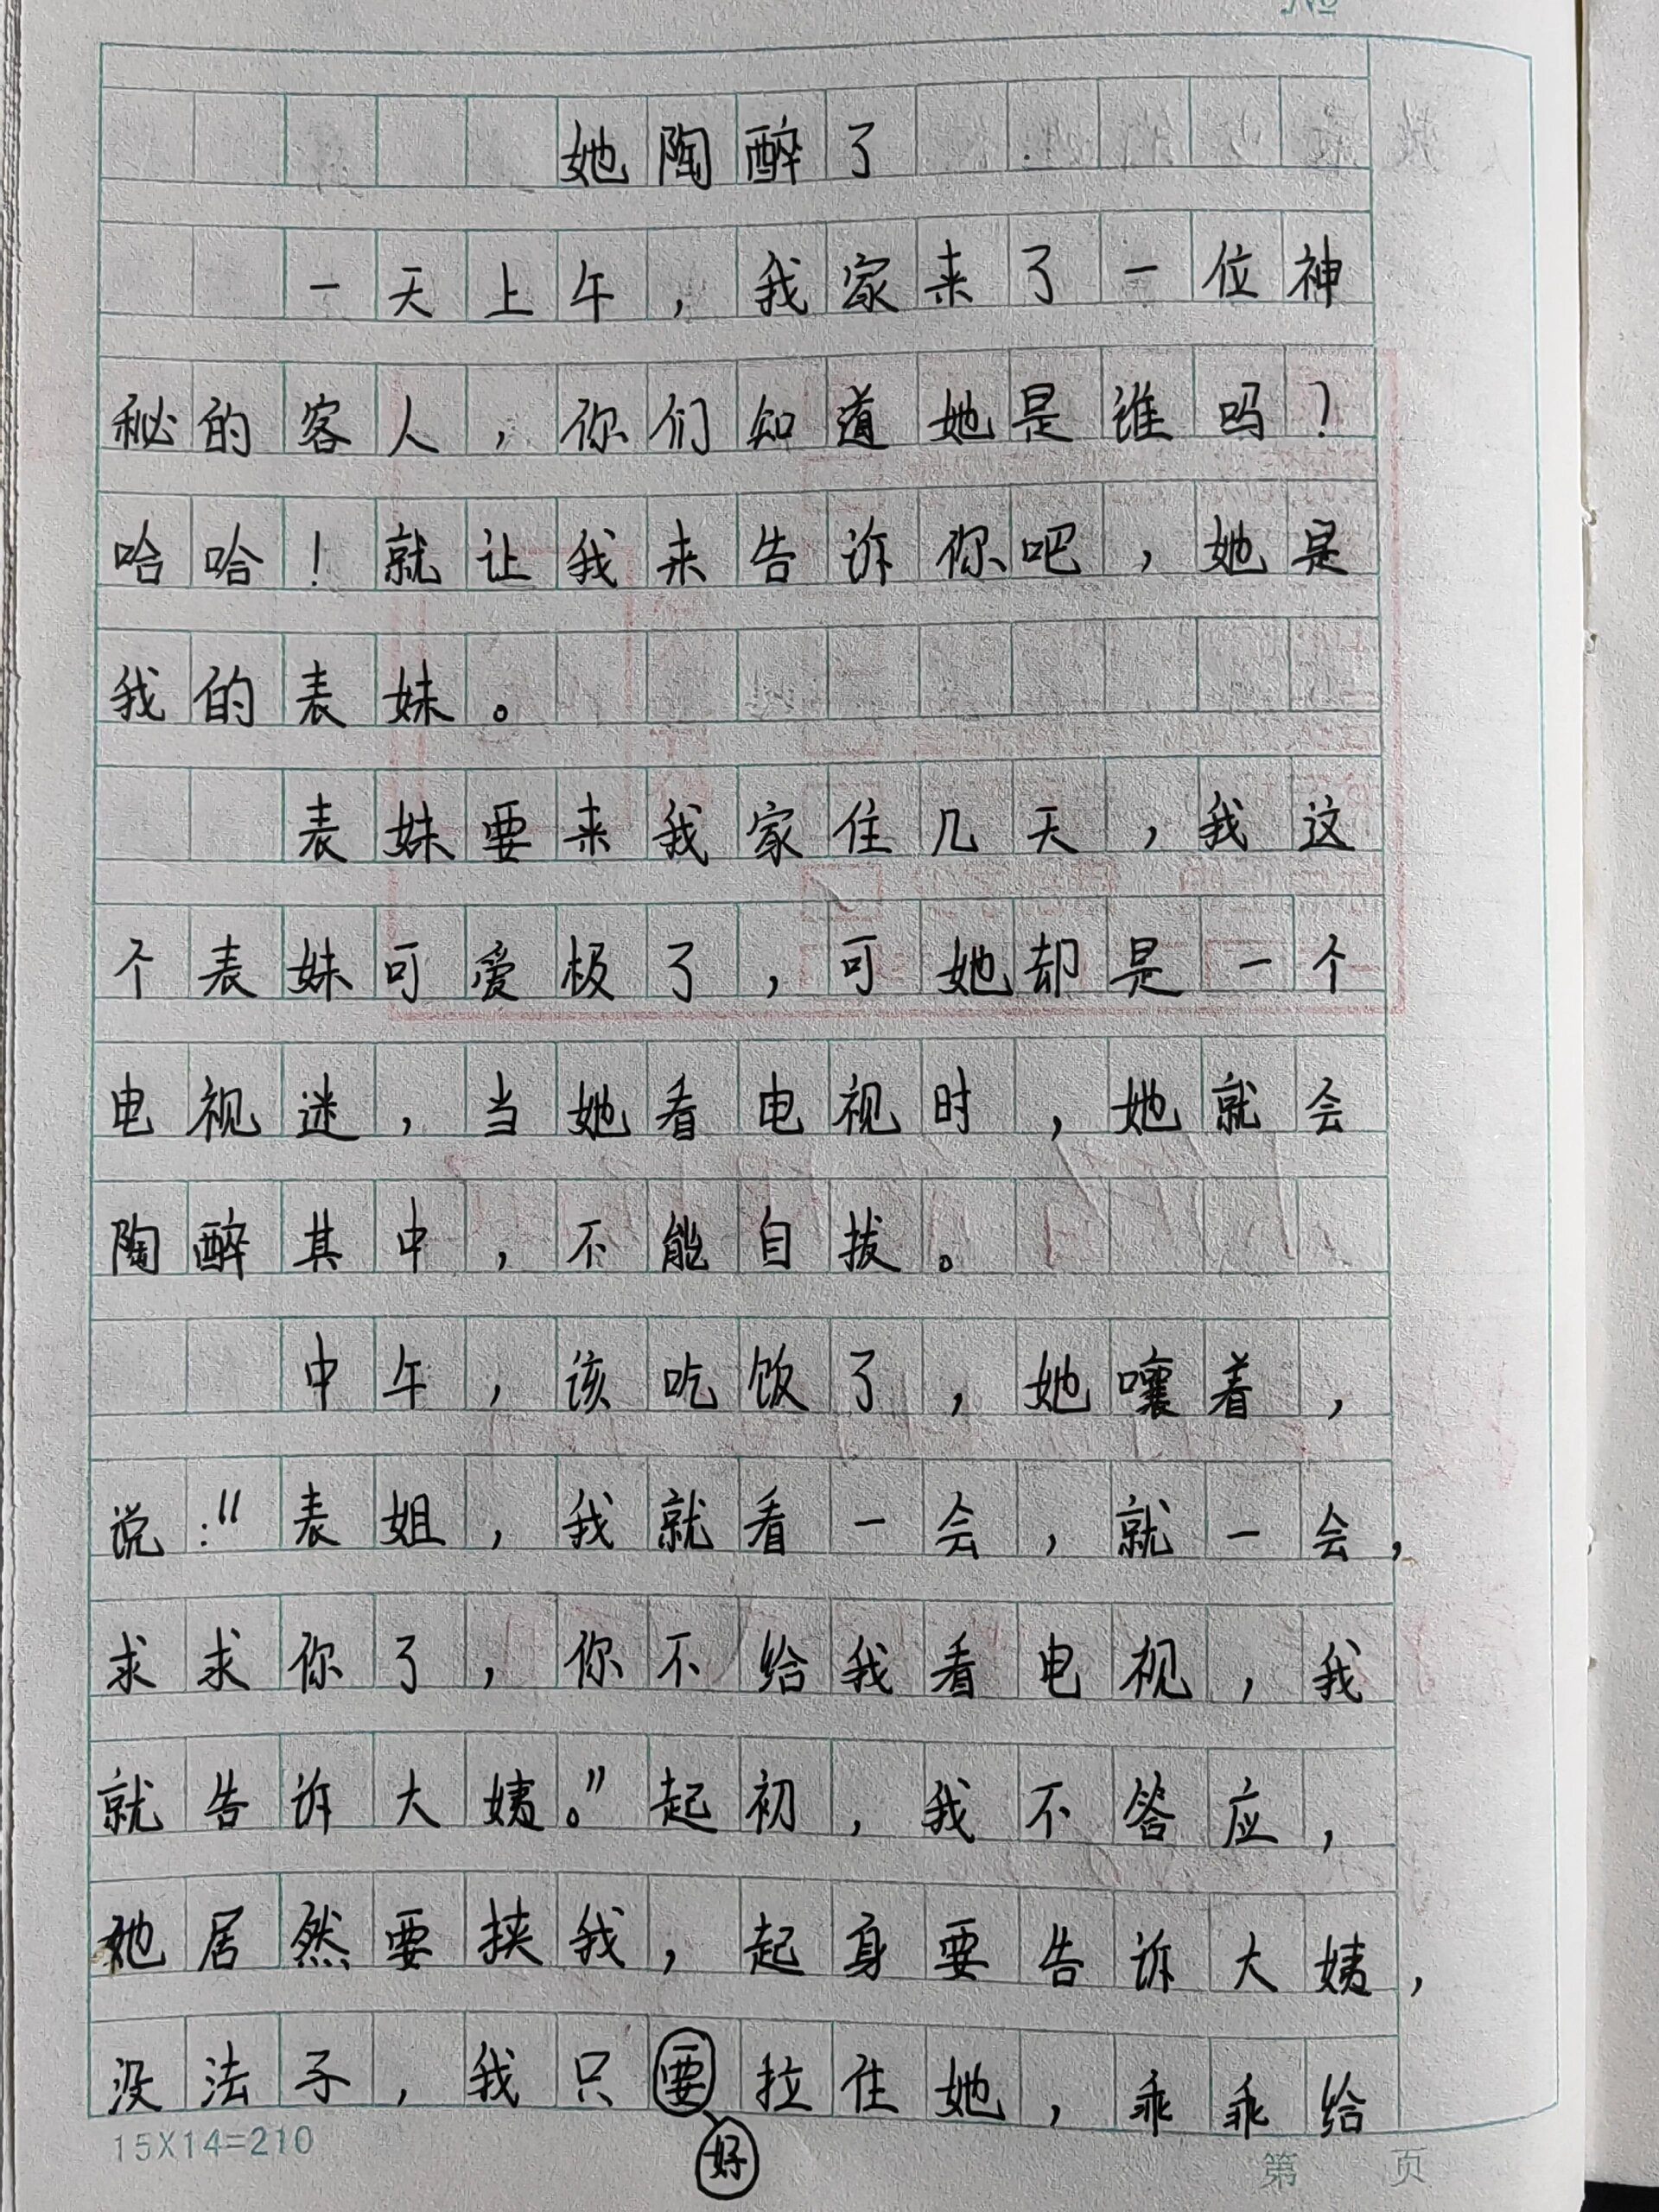 №
她陶醉了
一天上午，我家来了一位神
秘的客人，你们知道她是谁吗？
哈哈！就让我来告诉你吧，她是
我的表妹。
表妹要来我家住几天，我这
个表妹可爱极了，可她却是一个
电视迷，当她看电视时，她就会
陶醉其中，不能自拔。
中午，该吃饭了，她嚷着，
说：“表姐，我就看一会，就一会，
求求你了，你不给我看电视，我
就告诉大姨。”起初，我不答应，
她居然要挟我，起身要告诉大姨，
没法子，我只要拉住她，乖乖给
好
15X14=210
第 页